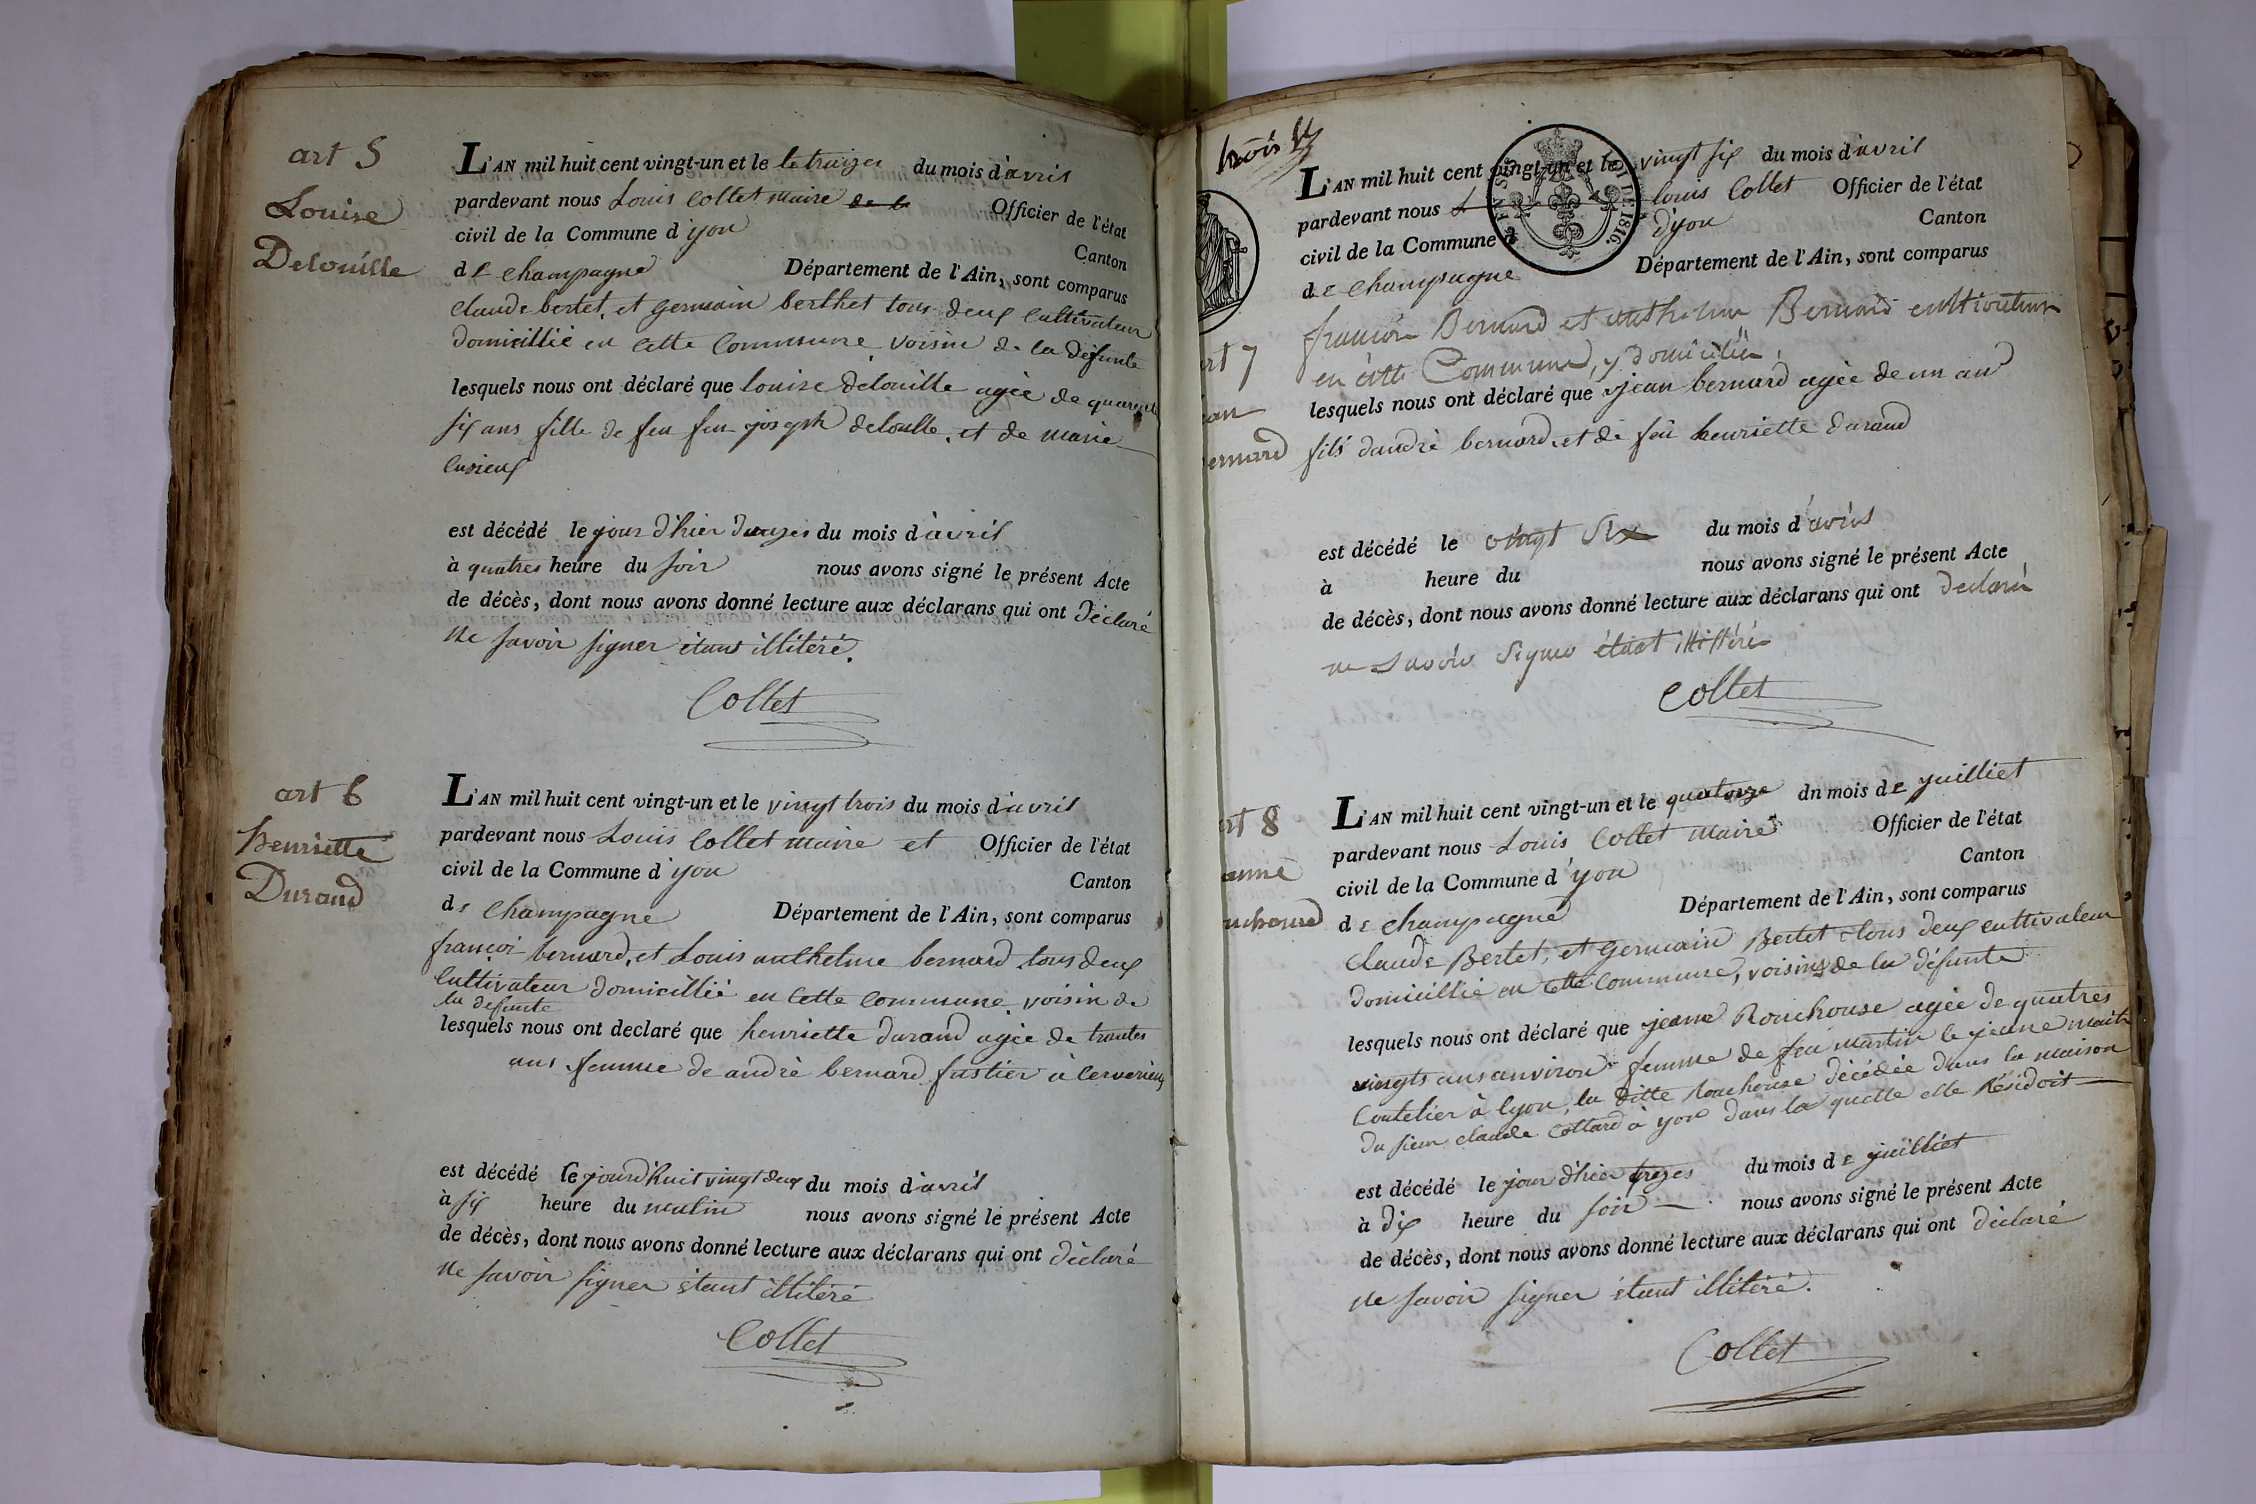 art 5
Louise
Delouille
L'AN mil huit cent vingt-un et le le traizes du mois d'avril
pardevant nous Louis Collet maire de l Officier de l'état
civil de la Commune d'yon Canton
de champagne Département de l'Ain, sont comparus
Claude bertet, et germain berthet tous deux Cultivateur
domicillié en cette Commune voisin de la défunte
lesquels nous ont déclaré que louise delouille agée de quarente
six ans fille de feu feu joseph deloulle, et de marie
est décédé le jour d'hier duozes du mois d'avril
à quatres heure du soir nous avons signé le présent Acte
de décès, dont nous avons donné lecture aux déclarans qui ont déclaré
ne savoir signer étant illitéré.
Collet
art 6
henriette
Durand
L'AN mil huit cent vingt-un et le vingt trois du mois d'avril
pardevant nous Louis Collet maire et Officier de l'état
civil de la Commune d'yon Canton
de champagne Département de l'Ain, sont comparus
françoi bernard, et Louis anthelme bernard tous deux
Cultivateur domicillié en cette Commune voisin de
la defunte
lesquels nous ont declaré que henriette durand agée de trantes
ans femme de andré bernard fustier à Cerverieux
est décédé le jourd'huit vingt deux du mois d'avril
à six heure du matin nous avons signé le présent Acte
de décès, dont nous avons donné lecture aux déclarans qui ont déclaré
ne savoir signer étant illitéré
Collet
L'AN mil huit cent vingt-un et le vingt six du mois d'avril
pardevant nous L louis Collet Officier de l'état
civil de la Commune d d'yon Canton
de champagne Département de l'Ain, sont comparus
1816.
art 7
françois Bernard et anthelme Bernard cultivateur
en cette Commune, y domicilié,
lesquels nous ont déclaré que jean bernard agée de un an
fils d'andré bernard, et de feu henriette durand
est décédé le vingt six du mois d'avril
à heure du nous avons signé le présent Acte
de décès, dont nous avons donné lecture aux déclarans qui ont déclaré
ne savoir signer étant illitéré
Collet
art 8
L'AN mil huit cent vingt-un et le quatorze dn mois de juilliet
pardevant nous Louis Collet maire Officier de l'état
civil de la Commune d'yon Canton
de champagne Département de l'Ain, sont comparus
Claude Bertet, et germain Bertet tous deux cultivateur
domicillié en cette Commune, voisins de la défunte
lesquels nous ont déclaré que jeanne Rouchouse agée de quatres
vingts ans anviron femme de feu martin le jeune maitr
Coutelier à lyon, la ditte Rouchouse décédée dans la maison
du sieur claude Collard à yon dans la quelle elle Résidoit
est décédé le jour d'hier trezes du mois de juilliet
à dix heure du soir nous avons signé le présent Acte
de décès, dont nous avons donné lecture aux déclarans qui ont déclaré
ne savoir signer étant illitéré.
Collet